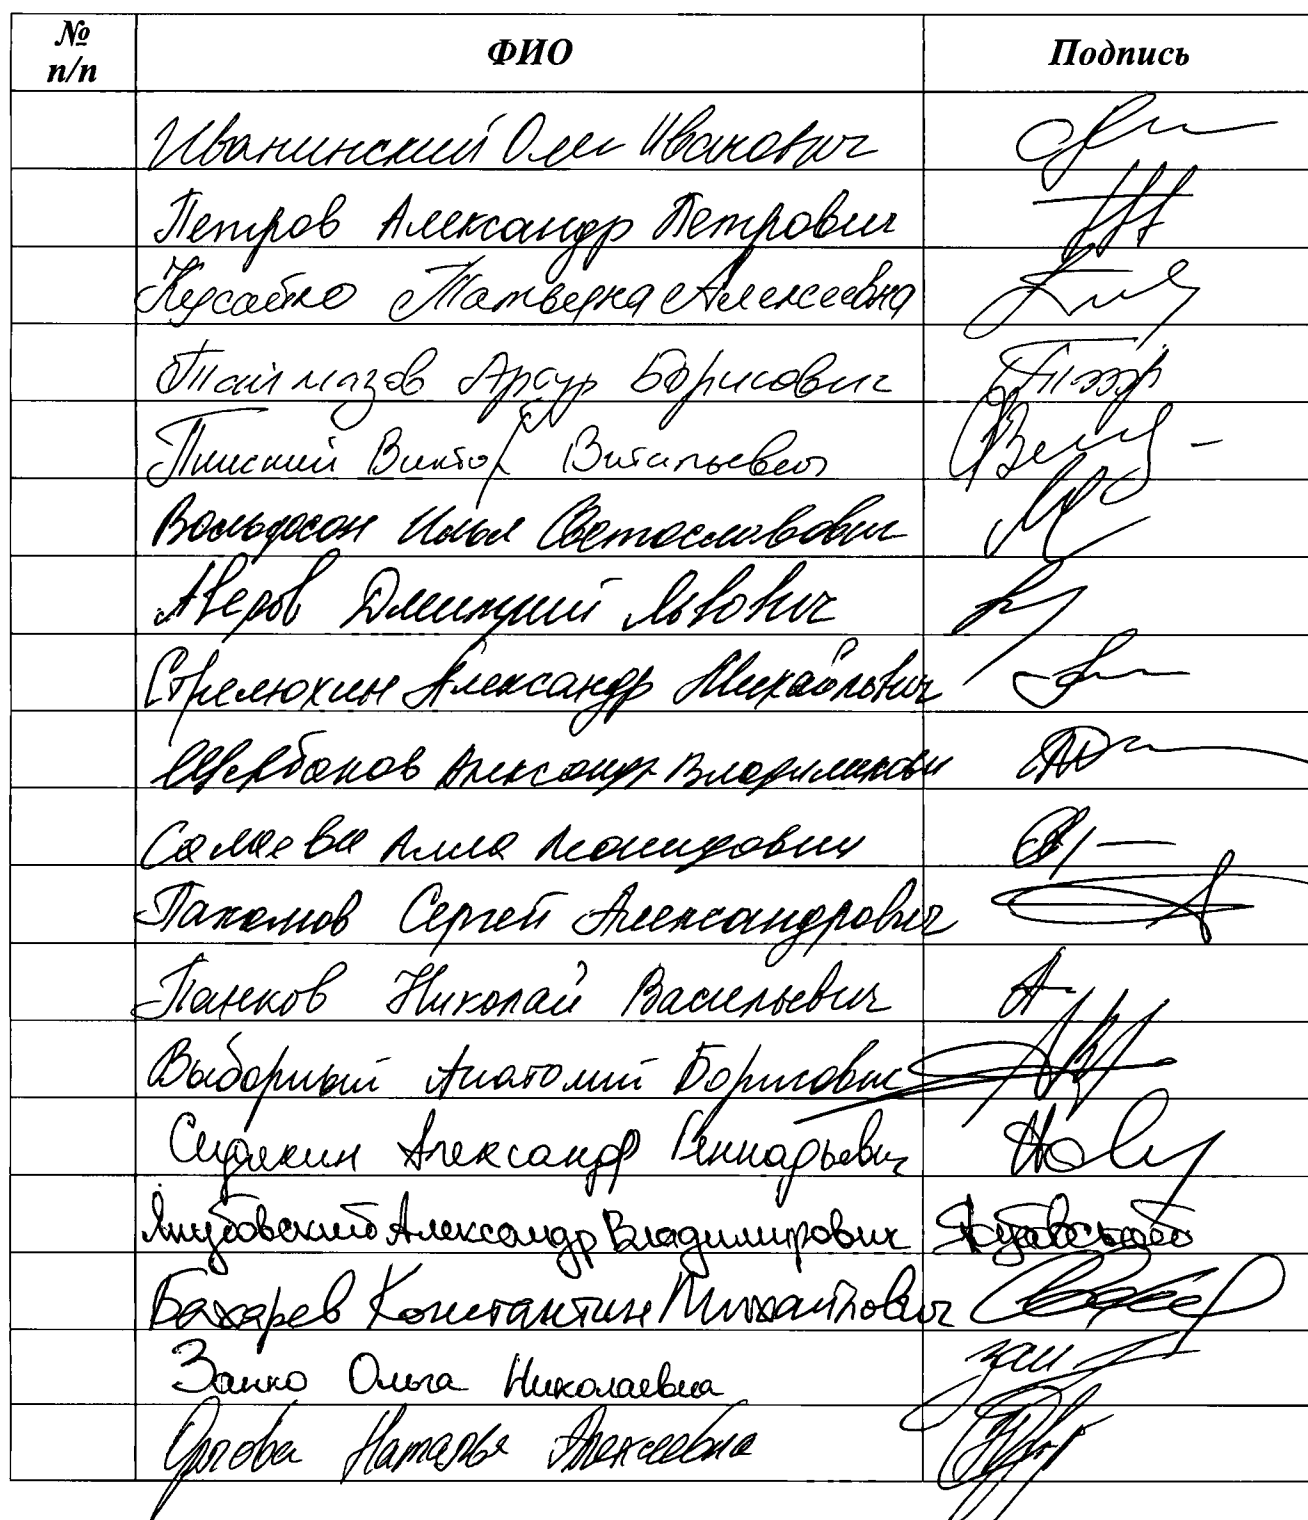 № п/п ФИО Подпись
Иванинский Олег Иванович
Петров Александр Петрович
Кусайко Татьяна Алексеевна
Таймазов Артур Борисович
Пинский Виктор Витальевич
Вольфсон Илья Светославович
Аверов Дмитрий Львович
Стрелюхин Александр Михайлович
Щербаков Александр Владимирович
Салаева Алла Леонидовна
Пахомов Сергей Александрович
Панков Николай Васильевич
Выборный Анатолий Борисович
Сидякин Александр Геннадьевич
Якубовский Александр Владимирович Якубовский
Бахарев Константин Михайлович
Занко Ольга Николаевна
Орлова Наталья Алексеевна